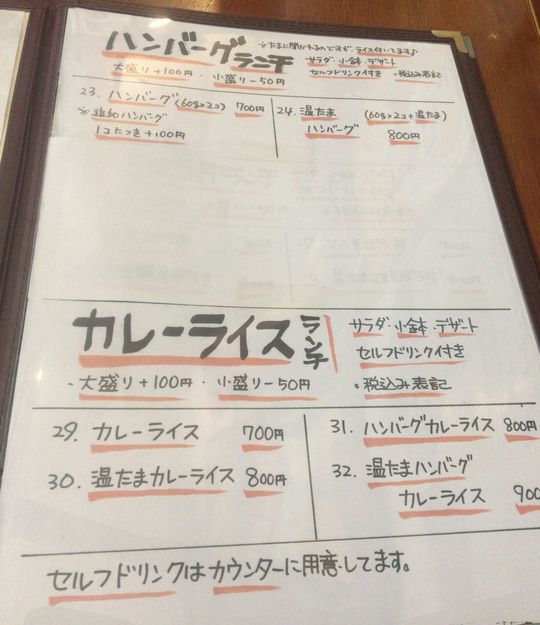 ハンバーグランチ
※たまに聞かれるのですが、ライス付いてます♪
サラダ・小鉢・デザート
大盛り+100円・小盛り-50円
セルフドリンク付き
・税込み表記
23. ハンバーグ(60g×2コ) 700円
※追加ハンバーグ
1コにつき+100円
24. 温たま (60g×2コ+温たま)
ハンバーグ 800円
カレーライスランチ
サラダ・小鉢・デザート
セルフドリンク付き
・大盛り+100円・小盛り-50円
・税込み表記
29. カレーライス 700円
30. 温たまカレーライス 800円
31. ハンバーグカレーライス 800円
32. 温たまハンバーグ
カレーライス 900
セルフドリンクはカウンターに用意してます。